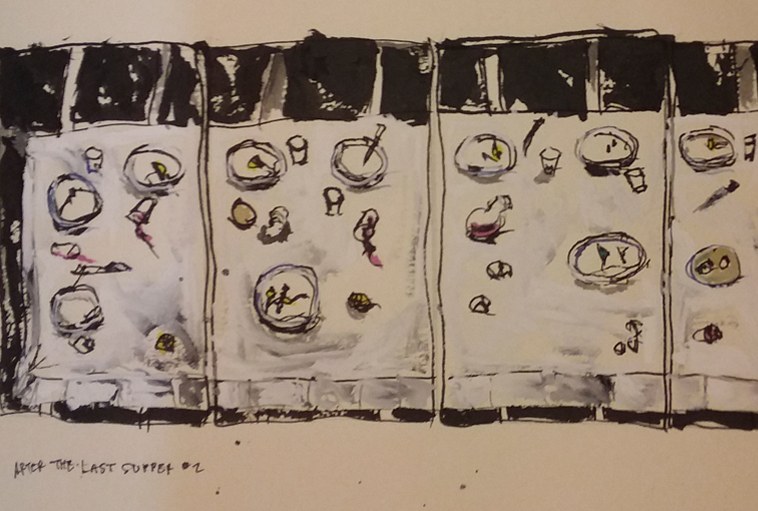 AFTER THE LAST SUPPER #2